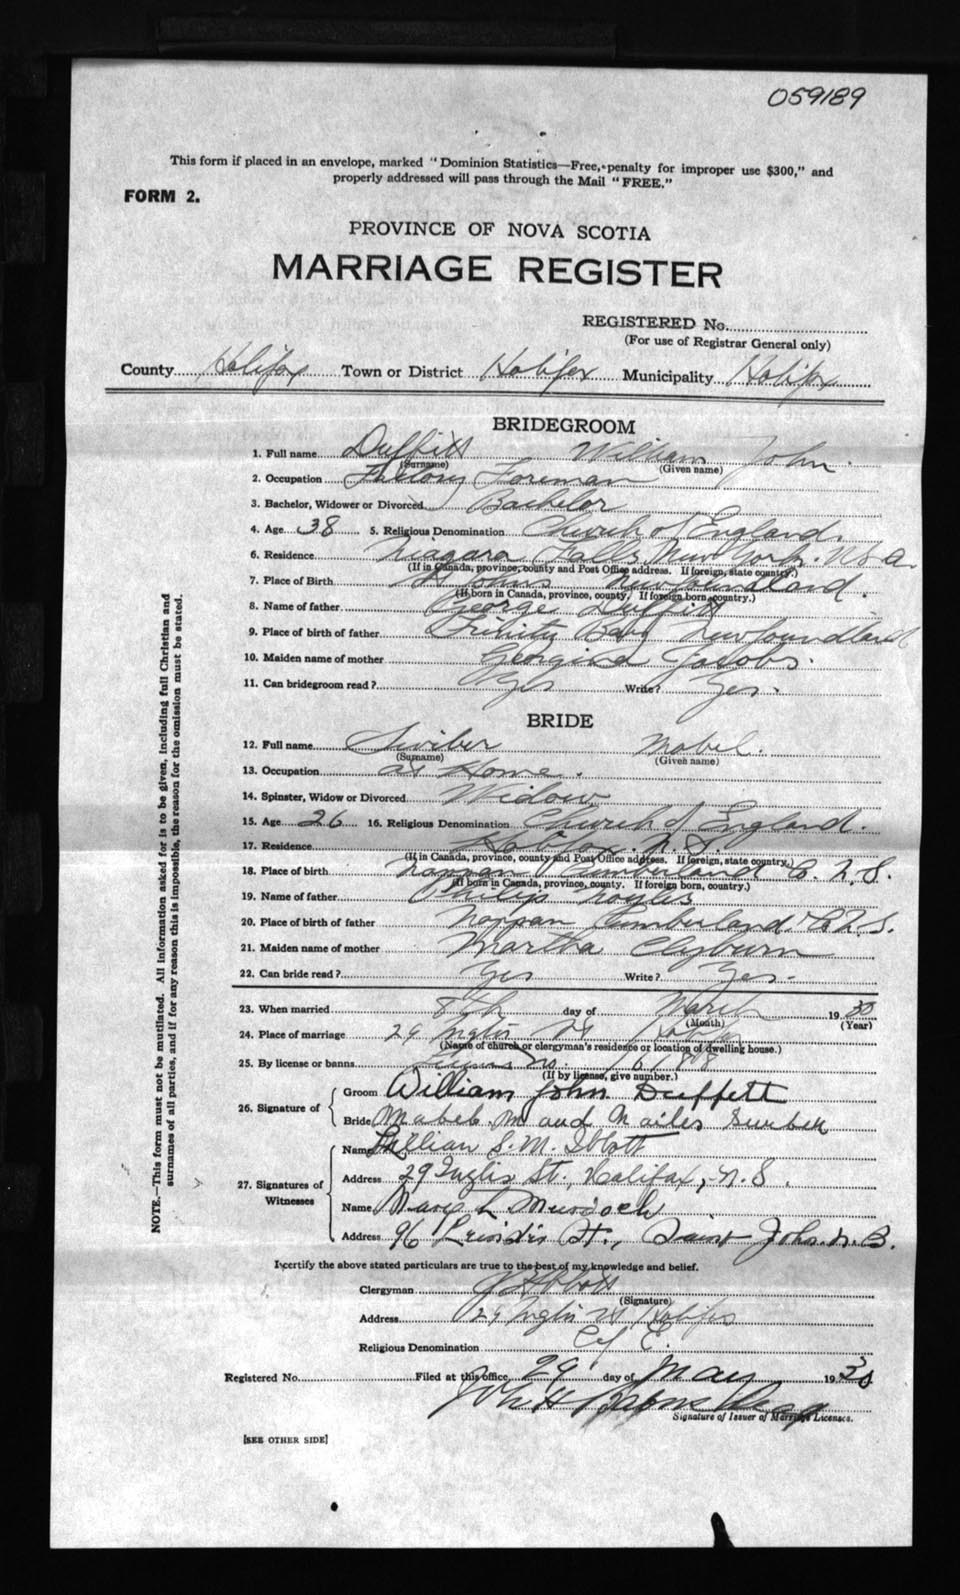 059189
This form if placed in an envelope, marked "Dominion Statistics—Free, penalty for improper use $300," and
properly addressed will pass through the Mail "FREE."
FORM 2.
PROVINCE OF NOVA SCOTIA
MARRIAGE REGISTER
REGISTERED No.
(For use of Registrar General only)
County Halifax Town or District Halifax Municipality Halifax
BRIDEGROOM
1. Full name Duffitt William John.
(Surname) (Given name)
2. Occupation Factory Foreman
3. Bachelor, Widower or Divorced Bachelor
4. Age 38 5. Religious Denomination Church of England.
6. Residence Niagara Falls, New York. U.S.A.
(If in Canada, province, county and Post Office address. If foreign, state country.)
7. Place of Birth St Johns Newfoundland.
(If born in Canada, province, county. If foreign born, country.)
8. Name of father George Duffitt
9. Place of birth of father Trinity Bay Newfoundland
10. Maiden name of mother Georgina Jacobs.
11. Can bridegroom read? Yes Write? Yes.
BRIDE
12. Full name Mabel.
(Surname) (Given name)
13. Occupation at Home.
14. Spinster, Widow or Divorced Widow
15. Age 26 16. Religious Denomination Church of England.
17. Residence Halifax. N.S.
(If in Canada, province, county and Post Office address. If foreign, state country.)
18. Place of birth Nappan Cumberland Co. N.S.
(If born in Canada, province, county. If foreign born, country.)
19. Name of father Philip Noyles
20. Place of birth of father Nappan Cumberland. Co N.S.
21. Maiden name of mother Martha Clyburn
22. Can bride read? Yes Write? Yes.
23. When married 8th day of March 1930
(Month) (Year)
24. Place of marriage 29 Inglis St Halifax
(Name of church or clergyman's residence or location of dwelling house.)
25. By license or banns License No
(If by license, give number.)
26. Signature of
Groom William John Duffett
Bride Mabel
27. Signatures of Witnesses
Name Lillian S. M. Ibbott
Address 29 Inglis St., Halifax, N.S.
Name Mary L. Murdoch
Address 96 St., Saint John. N.B.
I certify the above stated particulars are true to the best of my knowledge and belief.
Clergyman Ibbott
(Signature)
Address 29 Inglis St Halifax
Religious Denomination C of E.
Registered No. Filed at this office 29 day of May 1930
Signature of Issuer of Marriage Licenses.
[SEE OTHER SIDE]
NOTE.—This form must not be mutilated. All information asked for is to be given, including full Christian and
surnames of all parties, and if for any reason this is impossible, the reason for the omission must be stated.